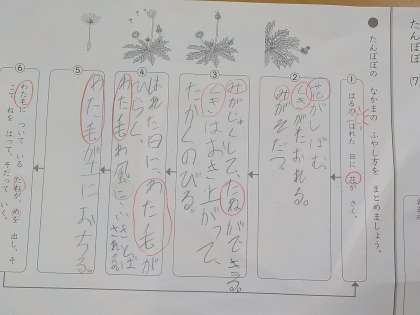 たんぽぽ (7)
● たんぽぽの なかまの ふやし方を まとめましょう。
①
はるの はれた 日に 花が さく。
②
花がしぼむ。
くきがたおれる。
みがそだつ。
③
みがじゅくして、たねができる。
くきはおき上がって、
たかくのびる。
④
はれた日に、わた毛が
ひらく。
わた毛わ風に
⑤
わた毛が土におちる。
⑥
わた毛に
ついて いる たねが、めを 出し、そ
こで ねを はって、そだって いく。